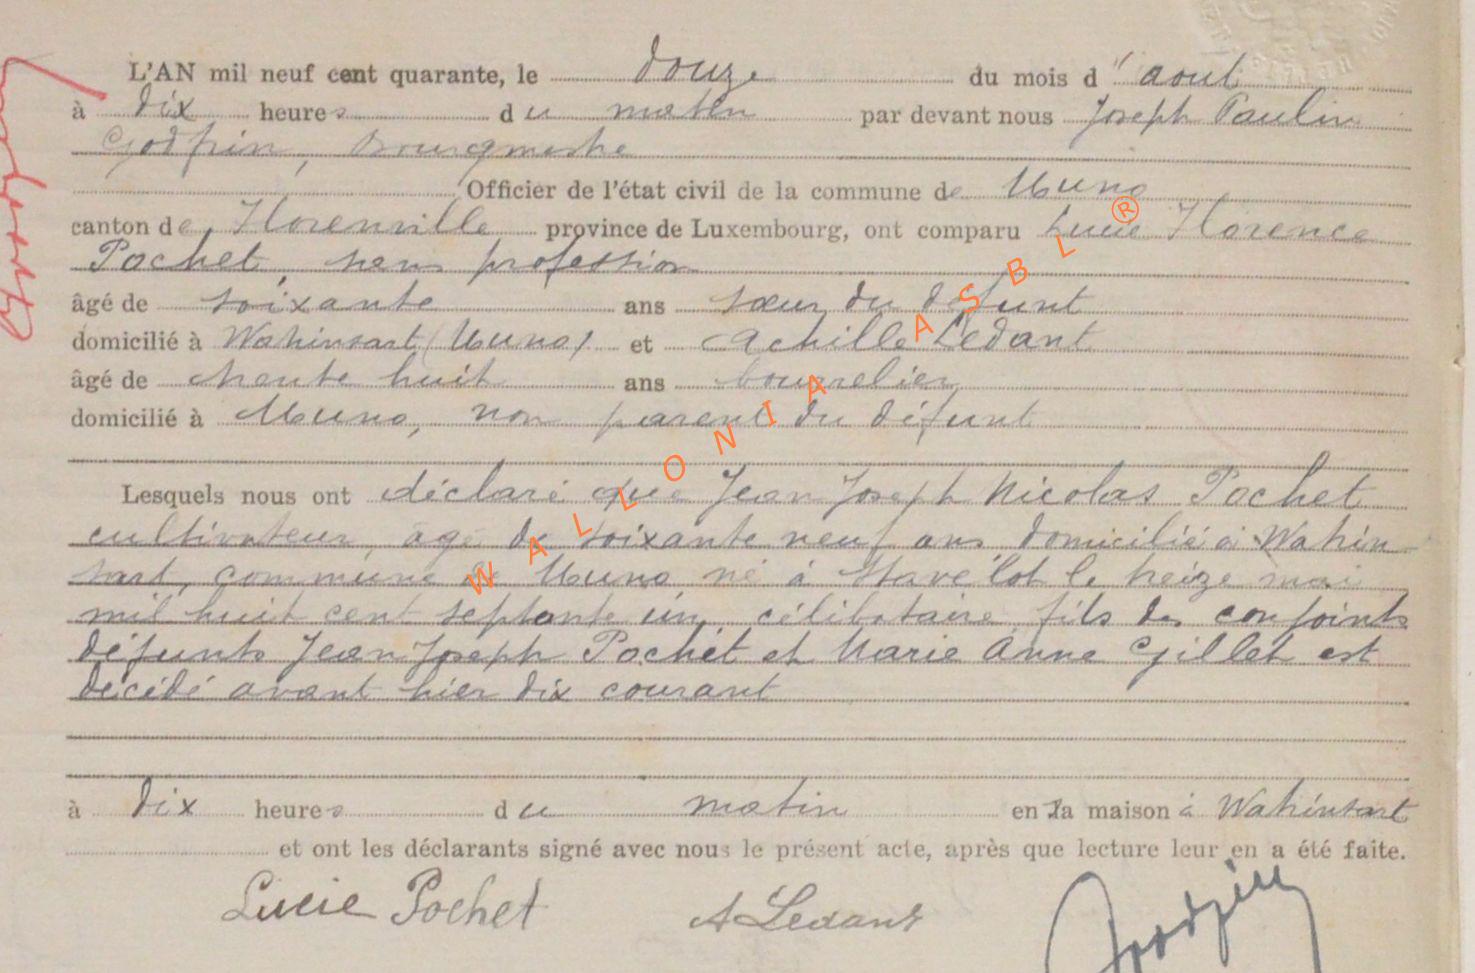 L'AN mil neuf cent quarante, le douze du mois d'août
à dix heures du matin par devant nous Joseph Paulin
Godfrin, Bourgmestre
Officier de l'état civil de la commune de Muno
canton de Florenville province de Luxembourg, ont comparu Lucie Florence
Pochet, sans profession
âgé de soixante ans sœur du défunt
domicilié à Wahinsart (Muno) et Achille Ledant
âgé de trente huit ans bourrelier
domicilié à Muno, non parent du défunt
Lesquels nous ont déclaré que Jean Joseph Nicolas Pochet
cultivateur, âgé de soixante neuf ans domicilié à Wahin-
sart, commune de Muno né à le treize mai
mil huit cent septante un, célibataire, fils des conjoints
défunts Jean Joseph Pochet et Marie Anne Gillet est
décédé avant hier dix courant
à dix heures du matin en sa maison à Wahinsart
et ont les déclarants signé avec nous le présent acte, après que lecture leur en a été faite.
Lucie Pochet A Ledant Godfrin
WALLONIA ASBL ®